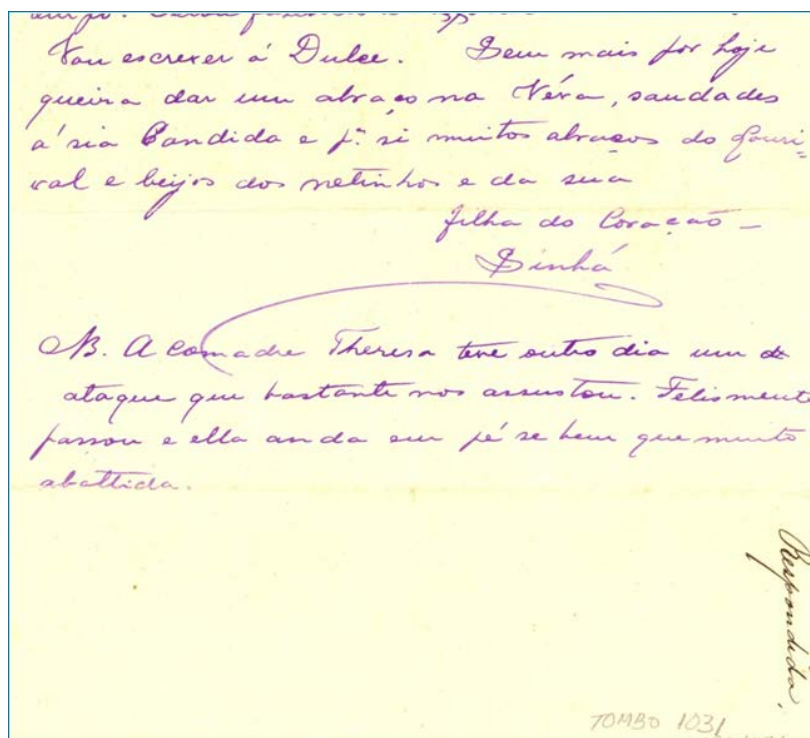 Vou escrever á Dulce. Sem mais por hoje
queira dar um abraço na Véra, saudades
á sia Candida e pª. si muitos abraços do Louri=
val e beijos dos netinhos e da sua
filha do Coração —
Sinhá
NB. A comadre Theresa teve outro dia um
ataque que bastante nos assustou. Felismente
passou e ella anda em pé se bem que muito
abattida.
Respondida.
TOMBO 1031